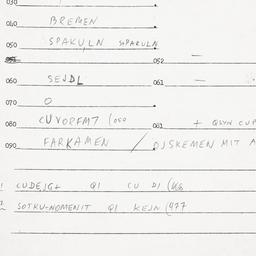 030
040 BREMEN
050 SPAKULN SPAKULN
052 —
060 SEJDL 061 —
070 O
080 CUVORFMT (050 081 + QSYN CUP
090 FARKAMEN / DJSKEMEN MIT A
1 CUDEJG+ QI CU DJ (UG
2 SOTKU-NOMENIT QI KEJN (477